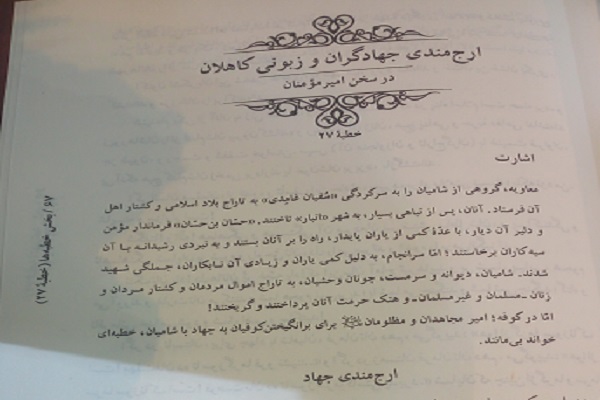 ارج‌مندی جهادگران و زبونی کاهلان
در سخن امیرمؤمنان
خطبهٔ ۲۷
اشارت
معاویه، گروهی از شامیان را به سرکردگی «سُفیان غامِدی» به تاراج بلاد اسلامی و کشتار اهل
آن فرستاد. آنان، پس از تباهی بسیار، به شهر «انبار» تاختند. «حسّان بن حسّان» فرماندار مؤمن
و دلیر آن دیار، با عدّهٔ کمی از یاران پایدار، راه را بر آنان بستند و به نبردی رشیدانه با آن
سیه‌کاران برخاستند؛ امّا سرانجام، به دلیل کمی یاران و زیادی آن نابکاران، جملگی شهید
شدند. شامیان، دیوانه و سرمست، چونان وحشیان، به تاراج اموال مردمان و کشتار مردان و
زنان ـ مسلمان و غیرمسلمان ـ و هتک حرمت آنان پرداختند و گریختند!
امّا در کوفه؛ امیر مجاهدان و مظلومان برای برانگیختن کوفیان به جهاد با شامیان، خطبه‌ای
خواند بی‌مانند.
ارج‌مندی جهاد
بخش خطبه‌ها (خطبهٔ ۲۷)